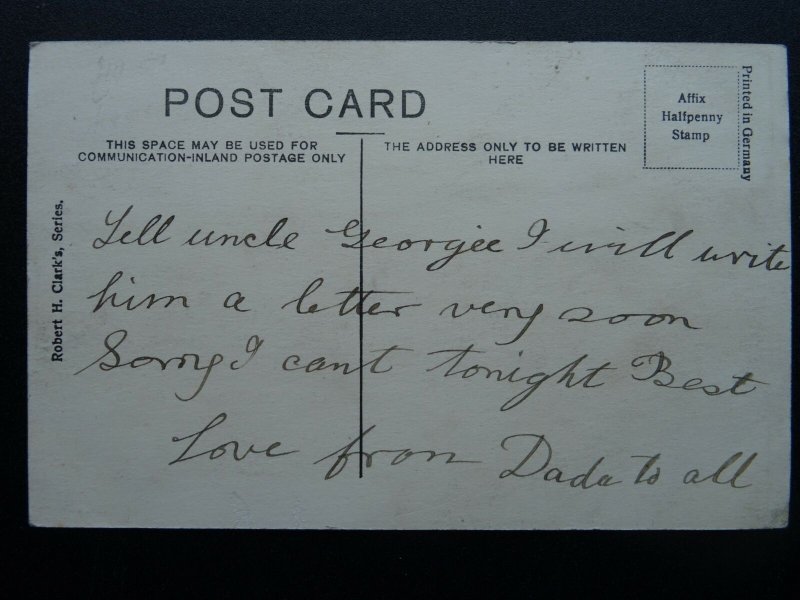 POST CARD
THIS SPACE MAY BE USED FOR
COMMUNICATION-INLAND POSTAGE ONLY
THE ADDRESS ONLY TO BE WRITTEN
HERE
Affix
Halfpenny
Stamp
Printed in Germany
Robert H. Clark's, Series.
Tell uncle Georgie I will write
him a letter very soon
Sorry I cant tonight Best
Love from Dada to all